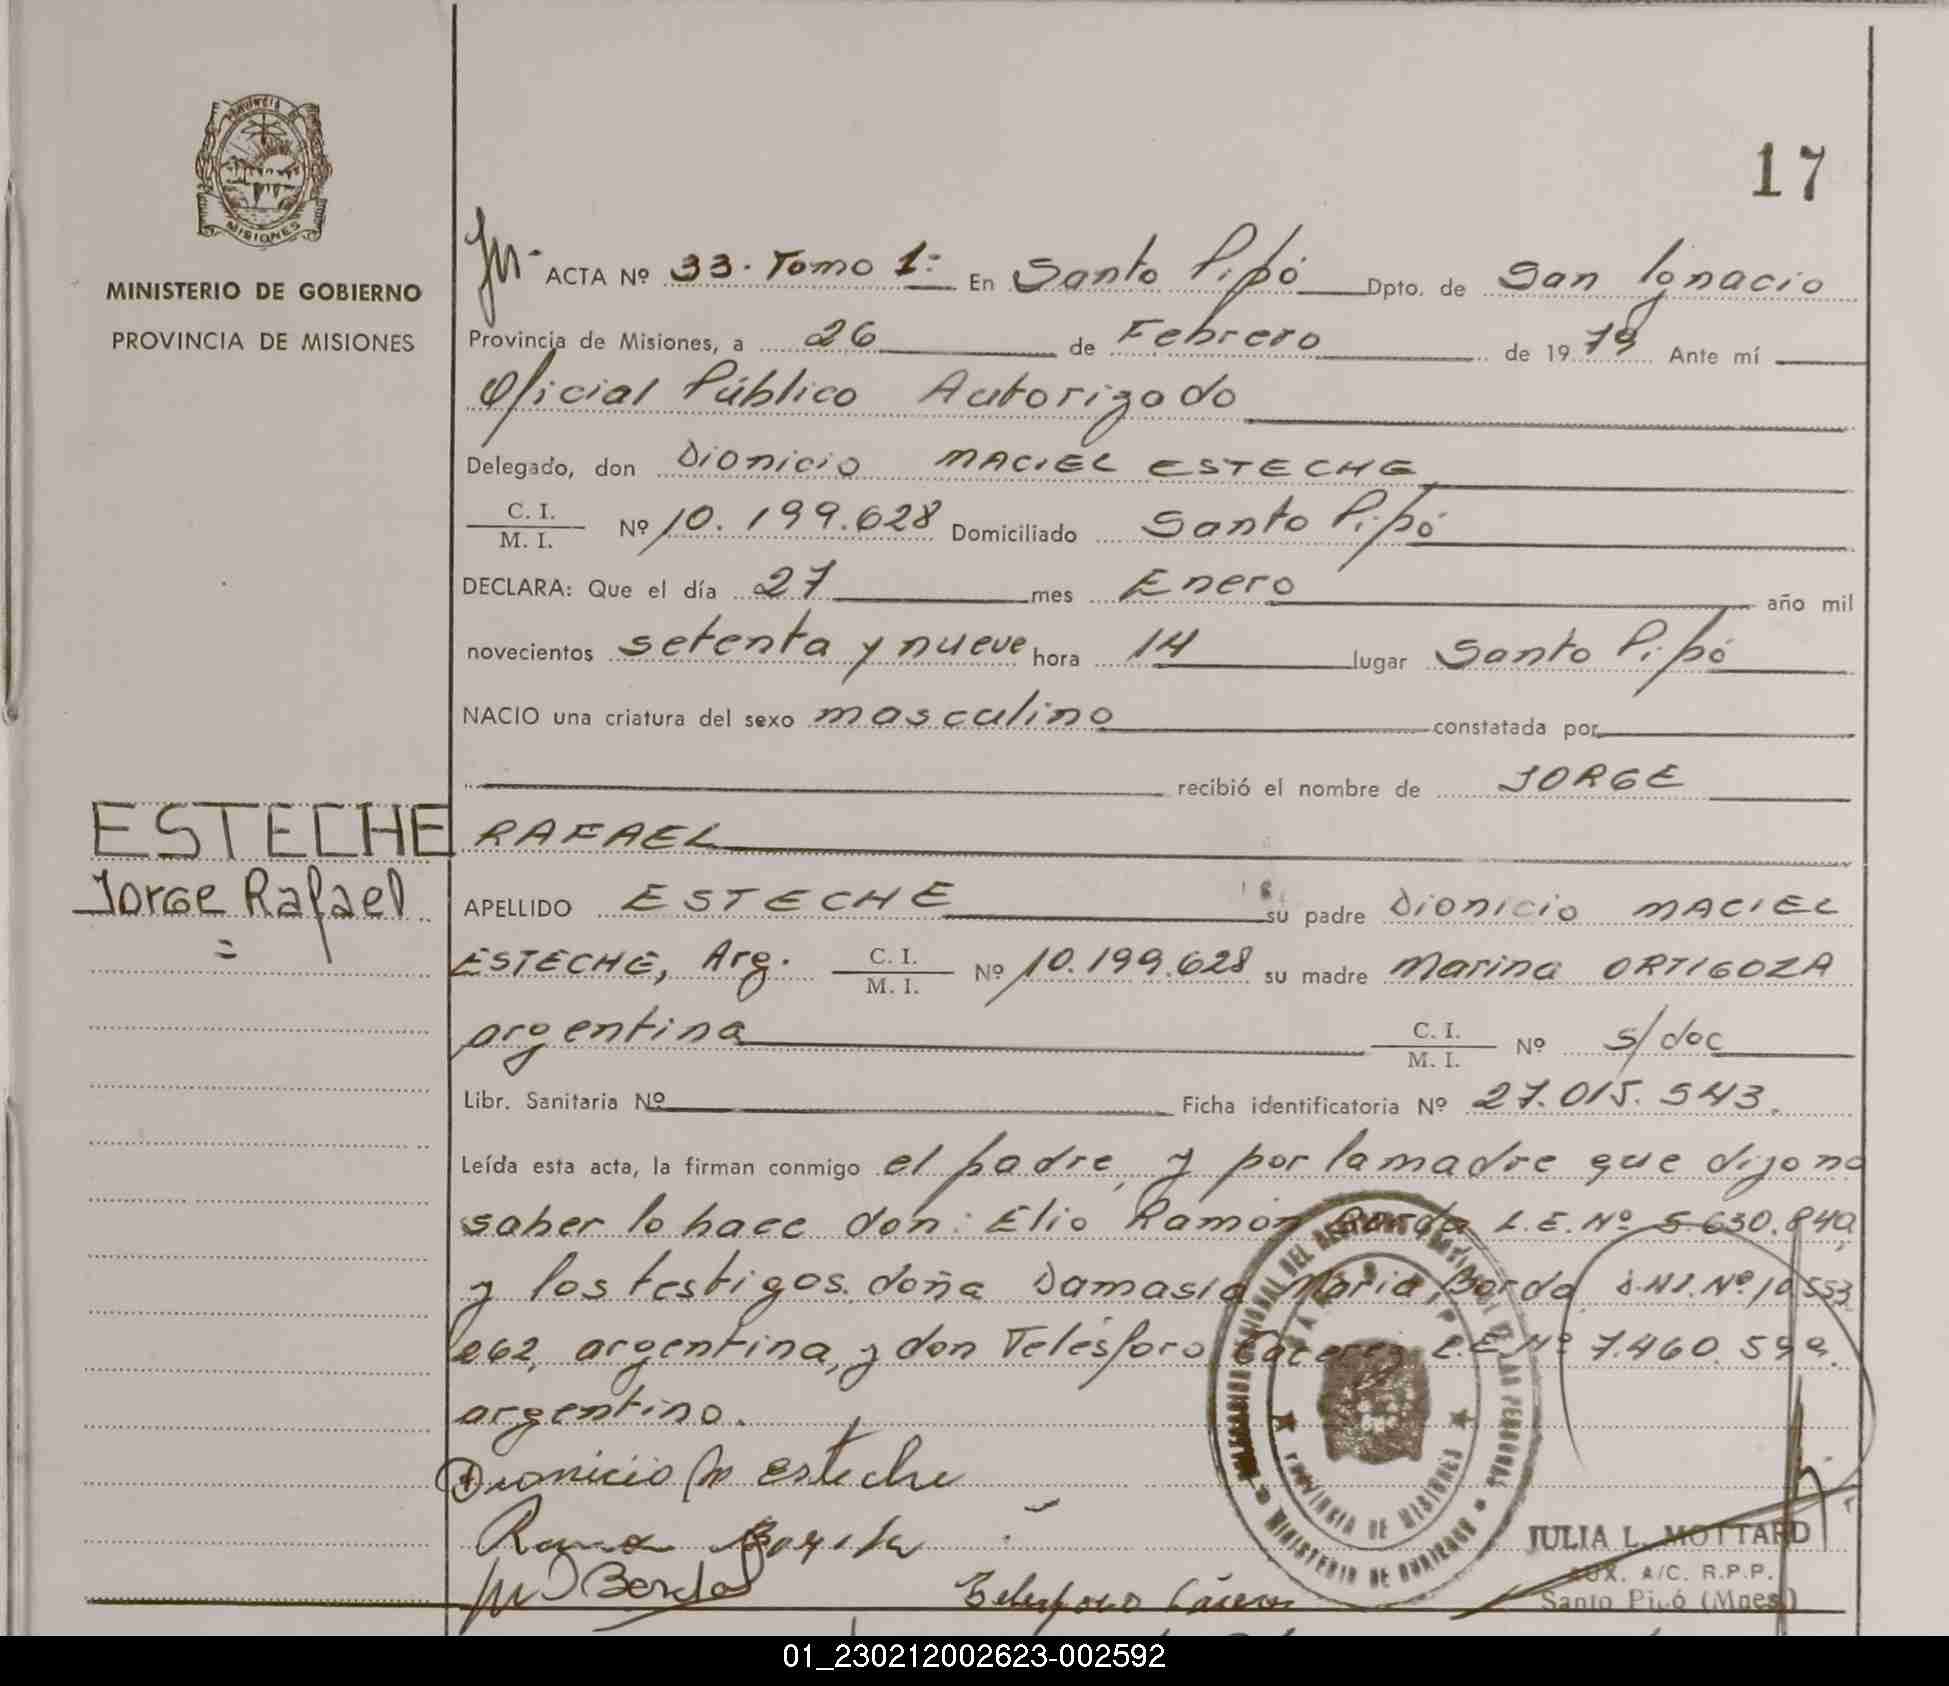 PROVINCIA DE
MISIONES
MINISTERIO DE GOBIERNO
PROVINCIA DE MISIONES
17
ACTA Nº 33. Tomo 1º En Santo Pipó Dpto. de San Ignacio
Provincia de Misiones, a 26 de Febrero de 1979 Ante mí
Oficial Público Autorizado
Delegado, don Dionicio MACIEL ESTECHE
C. I.
M. I. Nº 10.199.628 Domiciliado Santo Pipó
DECLARA: Que el día 27 mes Enero año mil
novecientos setenta y nueve hora 14 lugar Santo Pipó
NACIO una criatura del sexo masculino constatada por
recibió el nombre de JORGE
ESTECHE
RAFAEL
Jorge Rafael
=
APELLIDO ESTECHE su padre Dionicio MACIEL
ESTECHE, Arg. C. I. M. I. Nº 10.199.628 su madre Marina ORTIGOZA
argentina C. I. M. I. Nº s/doc
Libr. Sanitaria Nº Ficha identificatoria Nº 27.015.543.
Leída esta acta, la firman conmigo el padre, y por la madre que dijo no
saber lo hace don: Elio Ramón Borda L.E. Nº 5.630.840,
y los testigos. doña Damasia Maria Borda D.N.I. Nº 10.553
262, argentina, y don Telésforo Caceres L.E. Nº 7.460.599.
argentino.
Dionicio M Esteche
Borda
Telesforo Cáceres
DELEGACION REGIONAL DEL REGISTRO PROVINCIAL DE LAS PERSONAS
MINISTERIO DE GOBIERNO
SANTO PIPO
PROVINCIA DE MISIONES
JULIA L. MOTTARD
AUX. A/C. R.P.P.
Santo Pipó (Mnes)
01_230212002623-002592